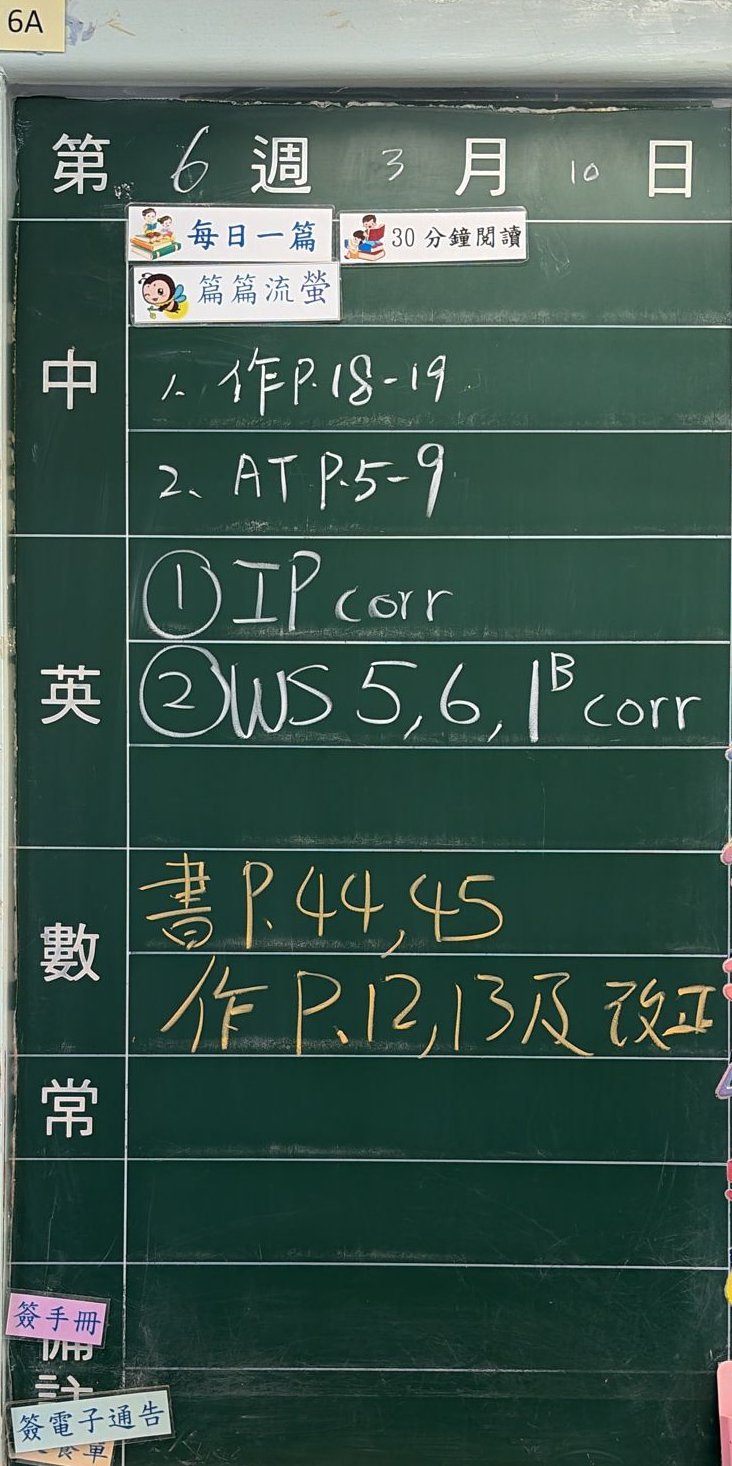 6A
第 6 週 3 月 10 日
每日一篇 30 分鐘閱讀
篇篇流螢
中
1. 作P.18-19
2. AT P.5-9
英
① IP corr
② WS 5, 6, 1B corr
數
書 P.44, 45
作 P.12, 13及改正
常
簽手冊
備註
簽電子通告